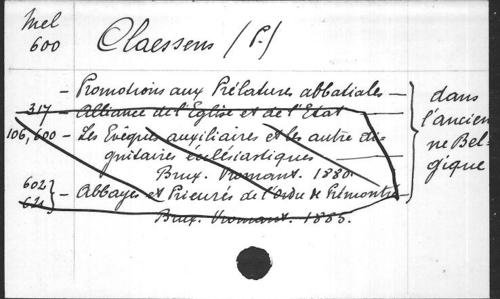 Mel
600
Claessens (P.)
- Promotions aux Prélatures abbatiales -
317 - Alliance de l'Eglise et de l'Etat
106,600 - Les Evêques auxiliaires et les autre di-
gnitaires ecclésiastiques
Brux. Vromant. 1880.
602 - Abbayes et Prieurés de l'Ordre de Prémontré
621
Brux. Vromant. 1883.
dans
l'ancien
ne Bel-
gique